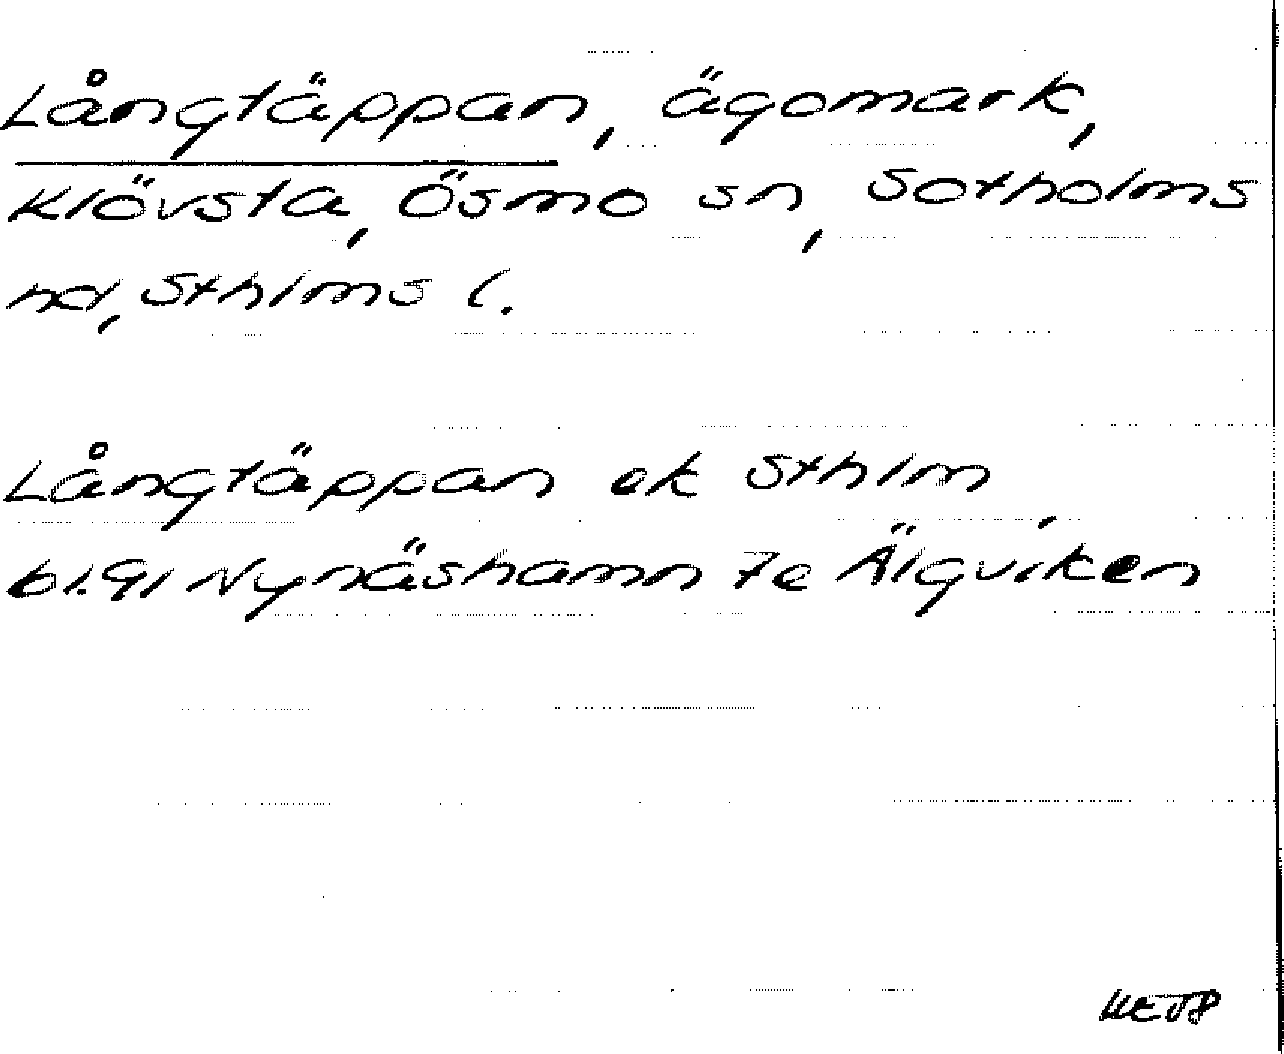 Långtäppan, ägomark,
Klövsta, Ösmo sn, Sotholms
hd, Sthlms l.
Långtäppan ek Sthlm,
bl. 91 Nynäshamn 7e Älgviken